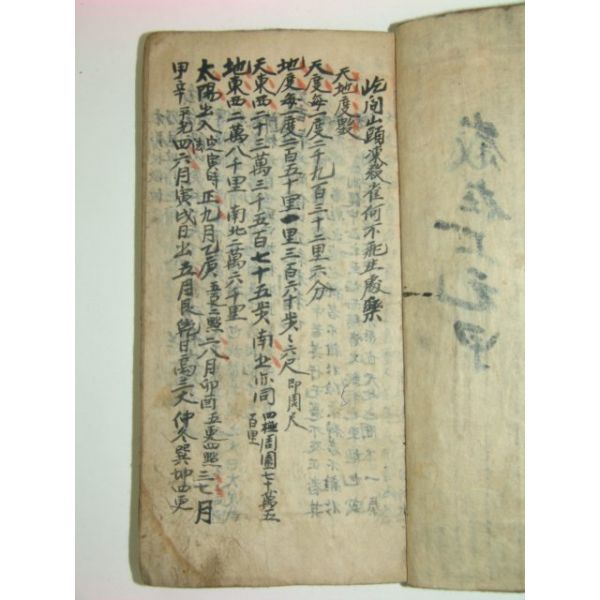 歲在上元甲
屹向山頭凍殺雀何不飛生處樂
天地度數
天度每一度二千九百三十二里六分
地度每一度二百五十里一里三百六十步々六尺即周尺
天東西二十三萬三千五百七十五步南北亦同四極周圍七十萬五百里
地東西二萬八千里南北二萬六千里
太陽出入法定寅時正九月乙庚五更二點二八月卯酉五更四點三七月
甲辛平光四六月寅戌日出五月艮乾日高三丈仲冬巽坤四更